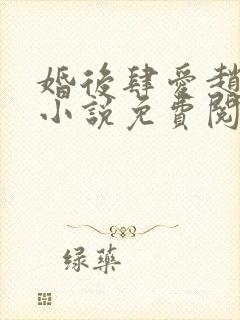 婚後肆愛趙
小說免費閱
绿藥